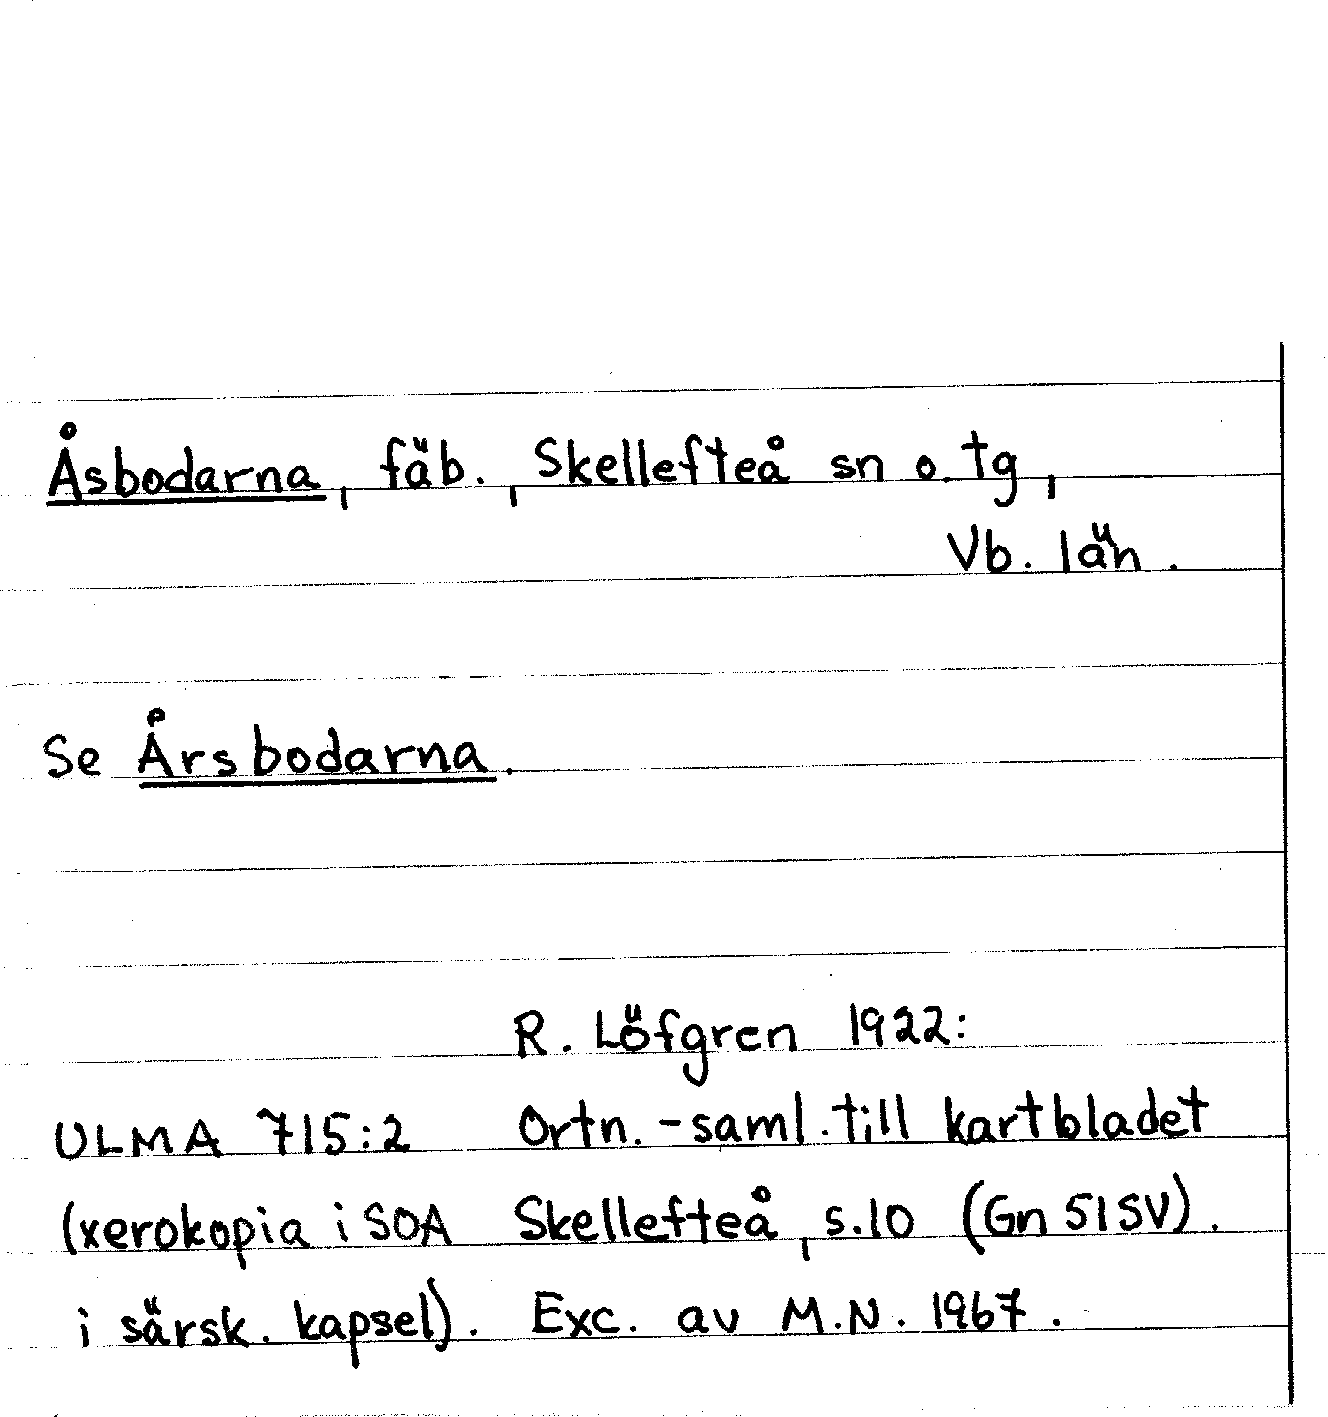 Åsbodarna, fäb., Skellefteå sn o. tg,
Vb. län.
Se Årsbodarna.
R. Löfgren 1922:
ULMA 715:2 Ortn.-saml. till kartbladet
(xerokopia i SOA Skellefteå, s.10 (Gn 51 SV).
i särsk. kapsel). Exc. av M.N. 1967.